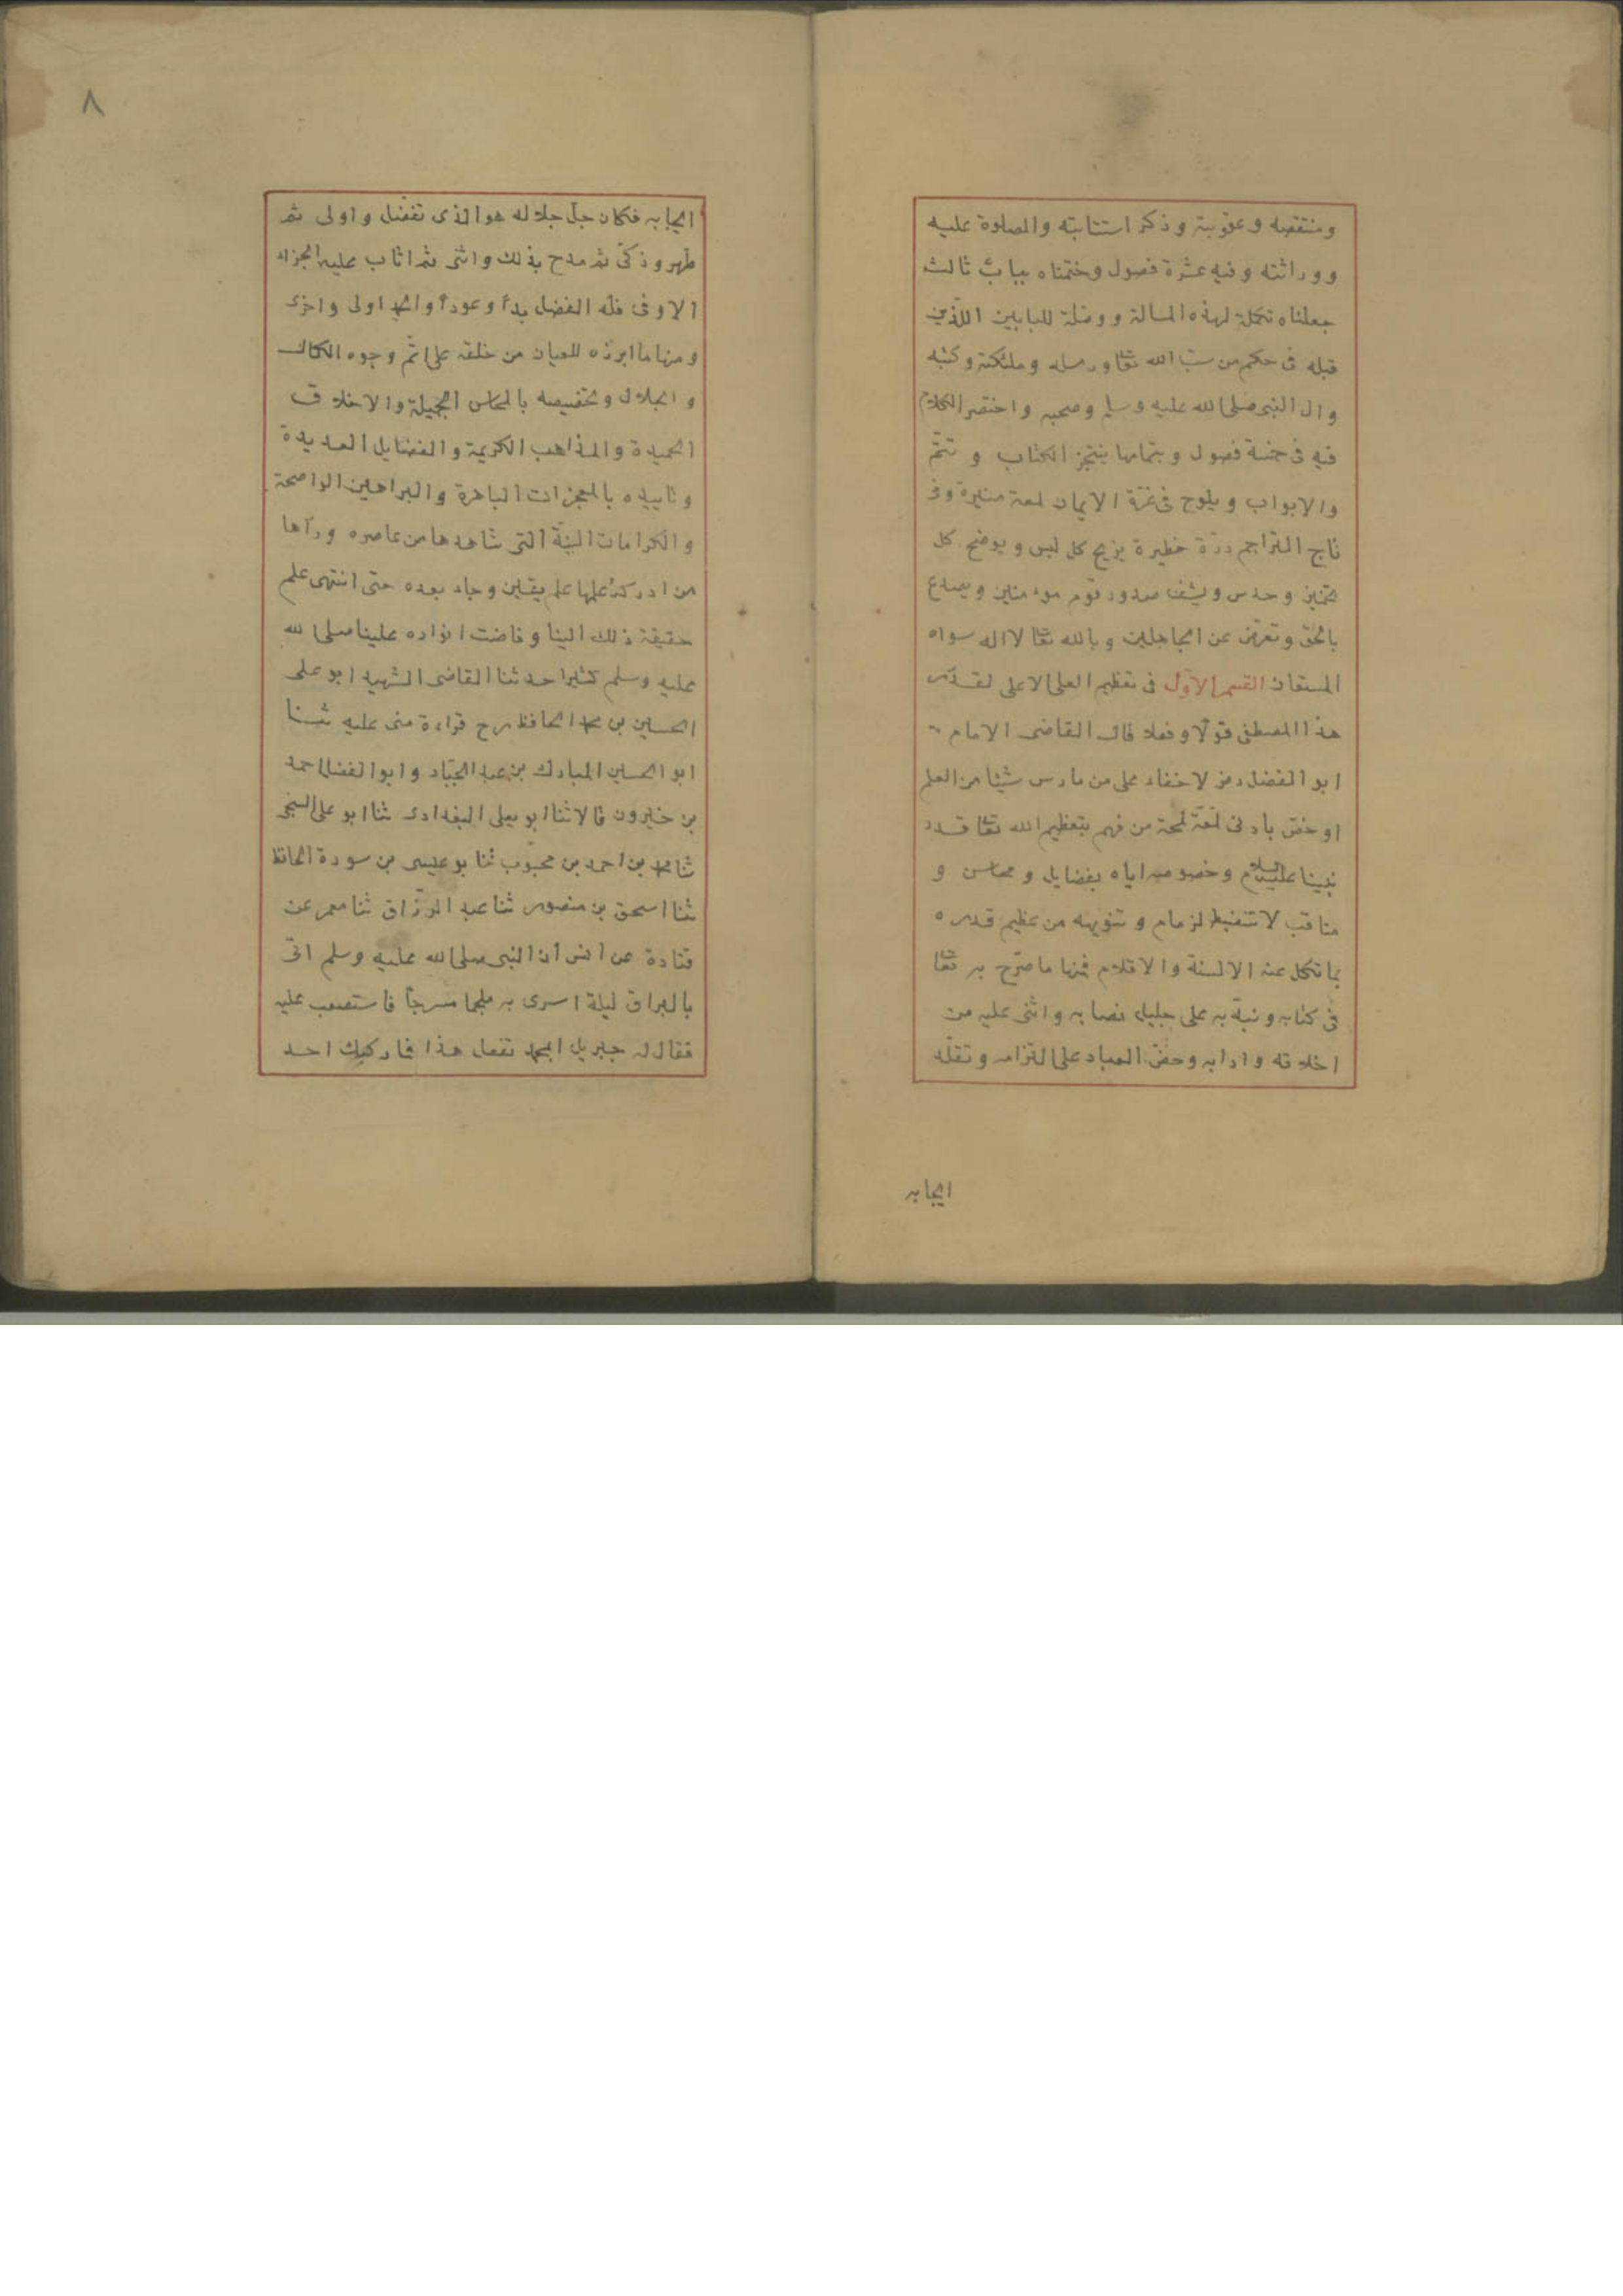 ومنتقصه وعقوبته وذكر استتابته والصلوة عليه
ووراثته وفيه عشرة فصول وختمناه بباب ثالث
جعلناه تكملة لهذه المسالة ووصلة للبابين اللذين
قبله فى حكم من سب الله تعا ورسله وملئكته وكتبه
وال النبى صلى الله عليه وسلم وصحبه واختصر الكلام
فيه فى خمسة فصول وبتمامها ينتجز الكتاب وتتم
والابواب ويلوح فى غرة الايمان لمعة منيرة وفى
تاج التراجم درة خطيرة يزيح كل لبس ويوضح كل
تخمين وحدس ويشف صدور قوم مومنين ويصدع
بالحق وتعرض عن الجاهلين وبالله تعا لا اله سواه
المستعان القسم الاول فى تعظيم العلى الاعلى لقدر
هذا المصطفى قولا وفعلا قال القاضى الامام
ابو الفضل رمز لا خفاء على من مارس شيئا من العلم
او خص بادنى لمعة لمحة من فهم بتعظيم الله تعا قدر
نبينا عليه السلام وخصوصه اياه بفضايل ومحاسن و
مناقب لا تنضبط لزمام وتنويهه من عظيم قدره
بما تكل عنه الالسنة والاقلام فمنها ما صرح به تعا
فى كتابه ونبه به على جليل نصابه واثنى عليه من
اخلاقه وادابه وحض العباد على التزامه وتقلد
ايجابه
٨
ايجابه فكان جل جلاله هو الذى تفضل واولى ثم
طهر وزكى ثم مدح بذلك واثنى ثم اثاب عليه الجزاء
الاوفى فله الفضل بدأ وعودا والحمد اولى واخرى
ومنها ما ابرزه للعيان من خلقه على اتم وجوه الكمال
والجلال وتخصيصه بالمحاسن الجميلة والاخلاق
الحميدة والمذاهب الكريمة والفضايل العديدة
وتاييده بالمعجزات الباهرة والبراهين الواضحة
والكرامات البينة التى شاهدها من عاصره ورآها
من ادركه علمها علم يقين وجاء بعده حتى انتهى علم
حقيقة ذلك الينا وفاضت انواره علينا صلى الله
عليه وسلم كثيرا حدثنا القاضى الشهيد ابو على
الحسين بن محمد الحافظ رح قراءة منى عليه ثنا
ابو الحسين المبارك بن عبد الجبار وابو الفضل احمد
بن خيرون قالا ثنا ابو يعلى البغدادى ثنا ابو على السنجى
ثنا محمد بن احمد بن محبوب ثنا بو عيسى بن سورة الحافظ
ثنا اسحق بن منصور ثنا عبد الرزاق ثنا معمر عن
قتادة عن انس ان النبى صلى الله عليه وسلم اتى
بالبراق ليلة اسرى به ملجما مسرجا فاستصعب عليه
فقال له جبريل ابمحمد تفعل هذا فما ركبك احد